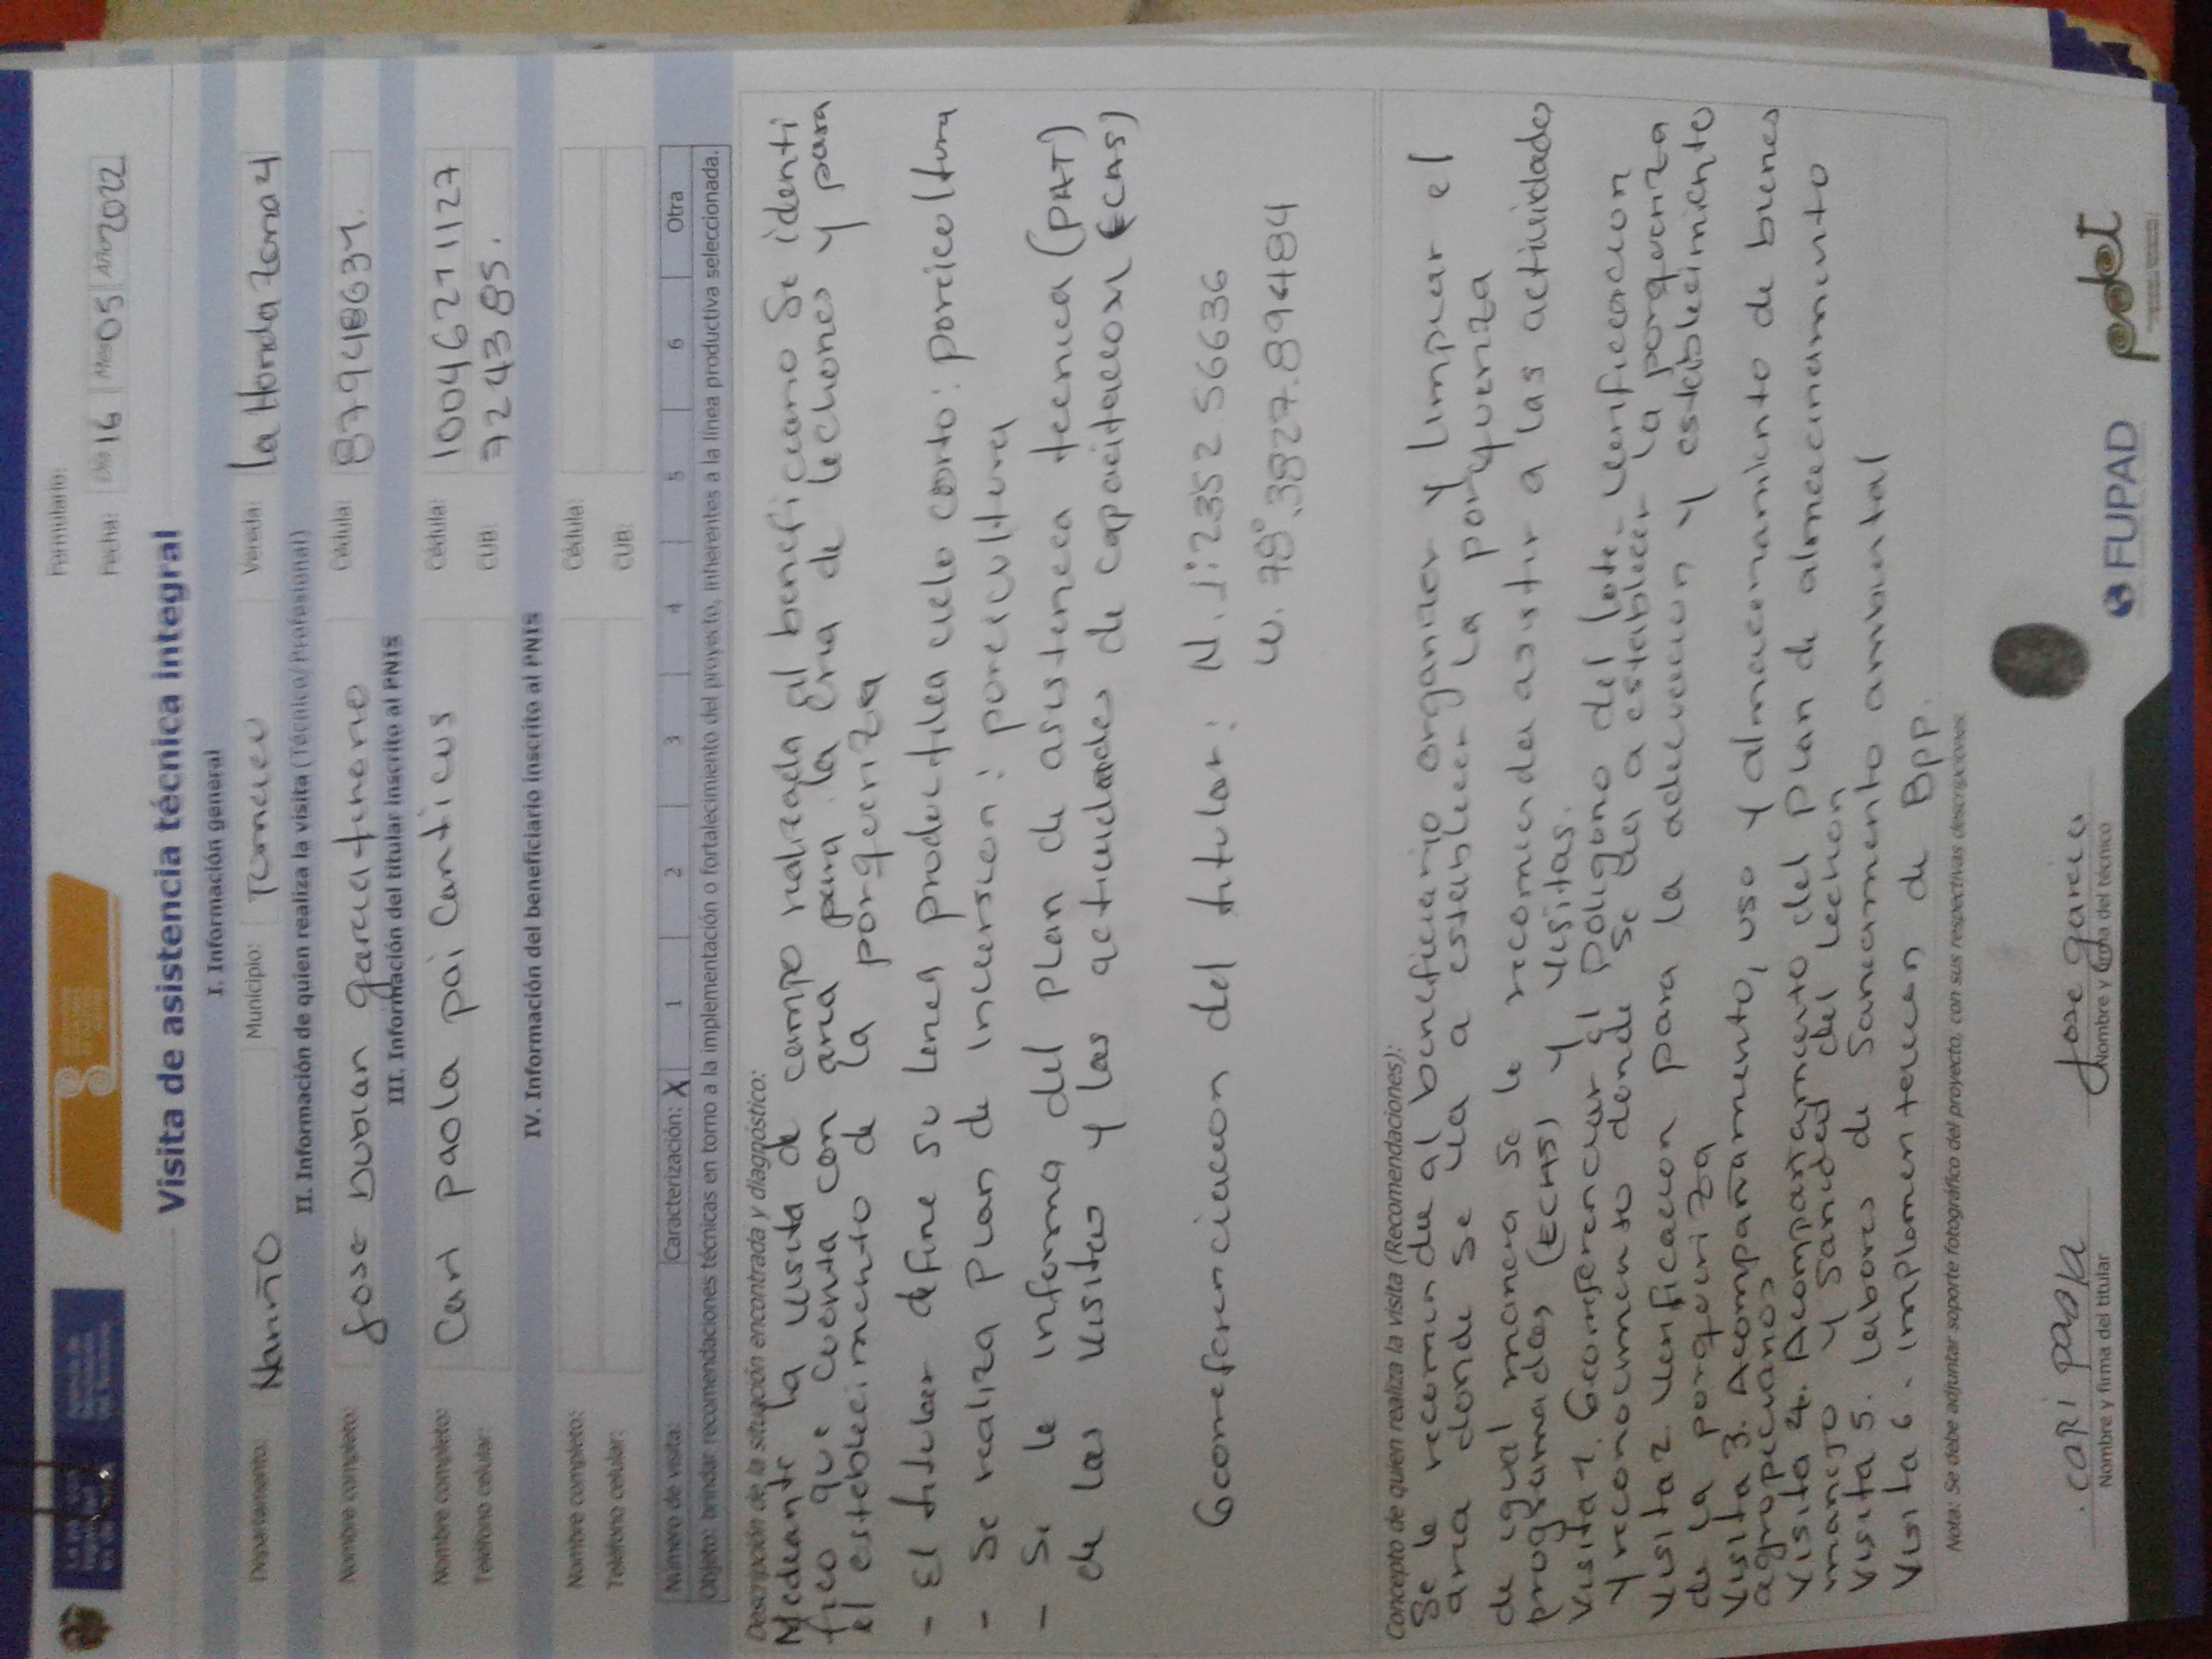 Formulario:
Fecha: Día 16 Mes 05 Año 2022
Visita de asistencia técnica integral
I. Información general
Departamento: Nariño Municipio: Tumaco Vereda: la Honda zona 4
II. Información de quien realiza la visita (Técnico/Profesional)
Nombre completo: Jose Dubian garcia tenorio Cédula: 87948634.
III. Información del titular inscrito al PNIS
Nombre completo: Cari paola pai Canticus Cédula: 1004621127
Teléfono celular: CUB: 724385.
IV. Información del beneficiario inscrito al PNIS
Nombre completo: Cédula:
Teléfono celular: CUB:
Número de visita: Caracterización: X 1 2 3 4 5 6 Otra
Objeto: brindar recomendaciones técnicas en torno a la implementación o fortalecimiento del proyecto, inherentes a la línea productiva seleccionada.
Descripción de la situación encontrada y diagnóstico:
Mediante la visita de campo realizada al beneficiario Se identi
fico que cuenta con area para la cria de lechones y para
el establecimiento de la porqueriza
- El titular define su linea productiva ciclo corto: poricoltura
- Se realiza plan de incersion: poreicultura
- Se le informa del plan de asistencia tecnica (PAT)
de las visitas y las actividades de capacitacion (ECAS)
Georreferenciacion del titular: N. 1: 2352 56636
W. 78°.3827.894484
Concepto de quien realiza la visita (Recomendaciones):
Se le recomienda al beneficiario organizar y limpiar el
area donde se va a establecer la porqueriza
de igual manera se le recomienda asistir a las actividades
programadas (ECAS) y visitas.
Visita 1. Georreferenciar el poligono del lote- verificacion
y reconocimiento donde se va a establecer la porqueriza
Visita 2 verificacion para la adecuacion y establecimiento
de la porqueriza
Visita 3. Acompañamiento, uso y almacenamiento de bienes
agropecuarios
Visita 4. Acompañamiento del plan de almacenamiento
manejo y sanidad del lechon
Visita 5. labores de Saneamiento ambiental
Visita 6. implementacion de BPP.
Nota: Se debe adjuntar soporte fotográfico del proyecto, con sus respectivas descripciones.
. cari paola
Nombre y firma del titular
Jose garcia
Nombre y firma del técnico
FUPAD
pdet